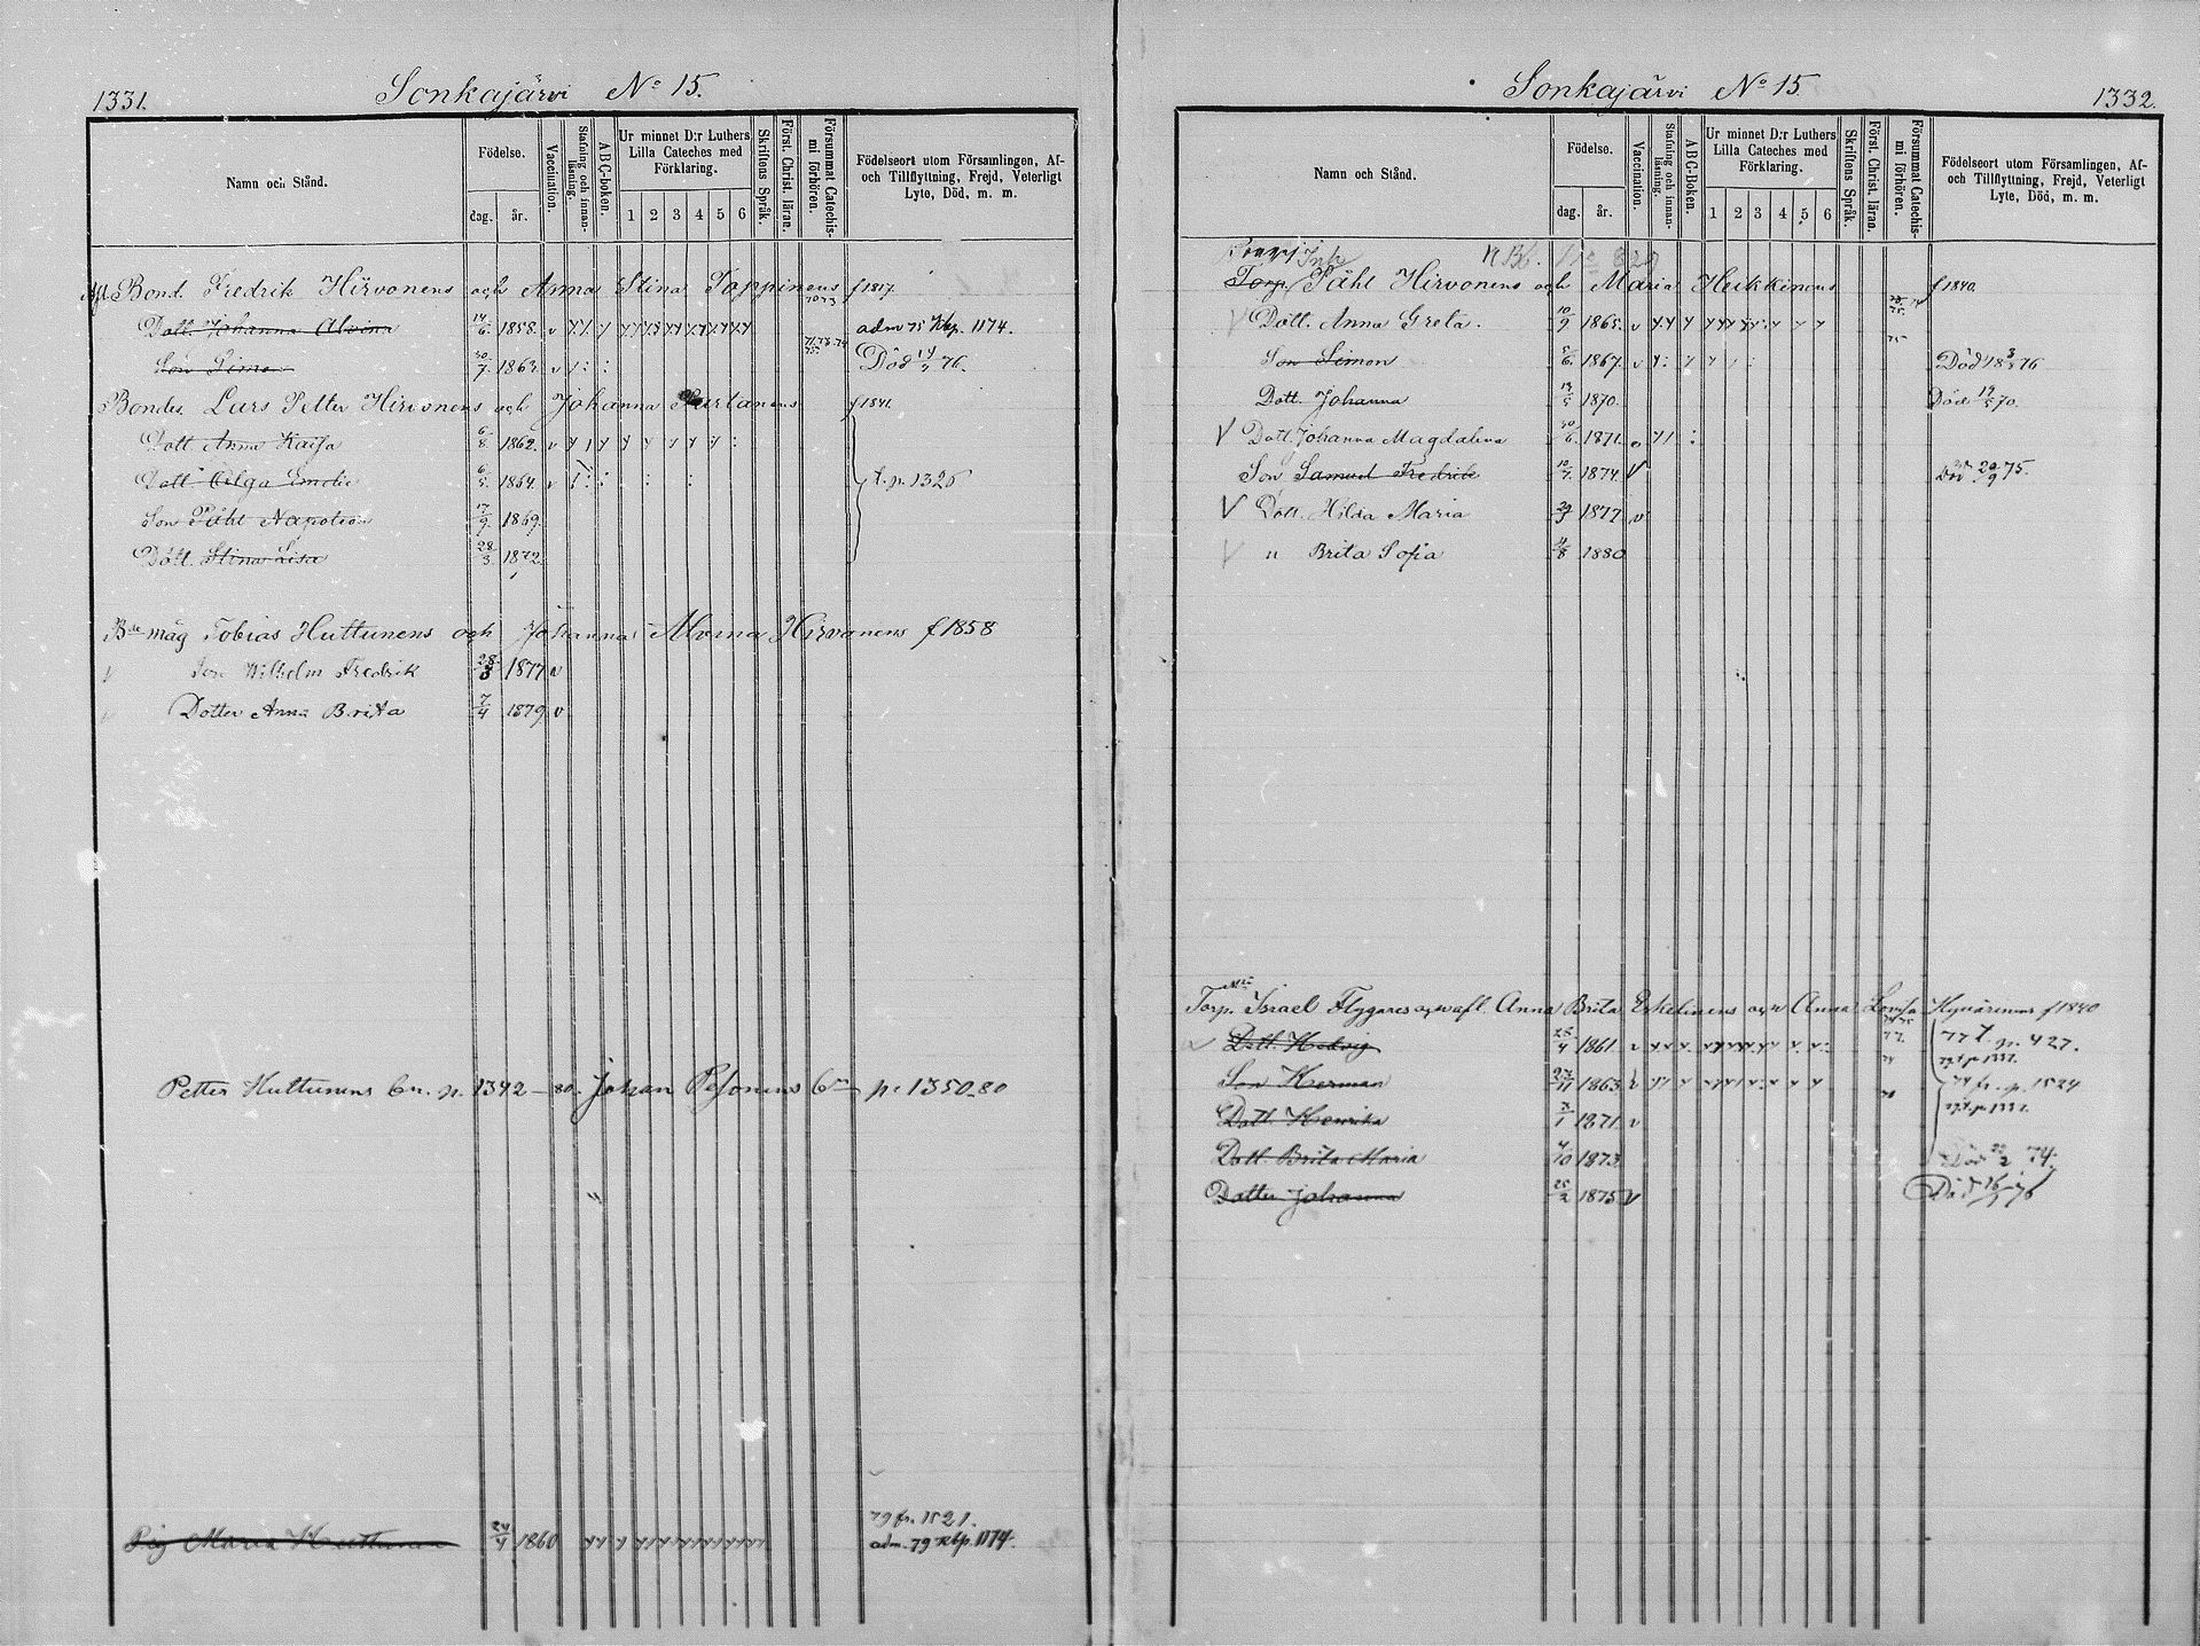 1331.
Sonkajärvi No 15.
Namn och Stånd.
Födelse.
dag.
år.
Vaccination.
Stafning och innanläsning.
ABC-boken.
Ur minnet D:r Luthers Lilla Cateches med Förklaring.
1 2 3 4 5 6
Skriftens Språk.
Först. Christ. läran.
Försummat Catechismi förhören.
Födelseort utom Församlingen, Af- och Tillflyttning, Frejd, Veterligt Lyte, Död, m. m.
Bond. Fredrik Hirvonens och Anna Stina Toppinens f 1817.
Dott. Johanna Alvina 14/6 1858. v adm 75 Kbp. 1174.
Son Simon 30/7 186 v Död 76.
Bondes. Lars Petter Hirvonens och Johanna Partanens f 1841.
Dott. Anna Kaisa 6/8 1862. v
Dott. Olga Emilie 6/5 1864. v t. p. 1326
Son Påhl Napoleon 17/9 1869.
Dött. Stina Lisa 28/3 1872.
Bde måg Tobias Huttunens och Johanna Alvina Hirvonens f 1858
Son Wilhelm Fredrik 28/3 1877 v
Dotter Anna Brita 7/4 1879 v
Petter Huttunens bn. p. 1342 - 80. Johan Pesonens bn p. 1350-80
79 fr. 1521.
Pig Maria Huttunen 24/4 1860 adm. 79 Kbp. 1174.
1332.
Sonkajärvi No 15
Namn och Stånd.
Födelse.
dag.
år.
Vaccination.
Stafning och innanläsning.
ABC-Boken.
Ur minnet D:r Luthers Lilla Cateches med Förklaring.
1 2 3 4 5 6
Skriftens Språk.
Först. Christ. läran.
Försummat Catechismi förhören.
Födelseort utom Församlingen, Af- och Tillflyttning, Frejd, Veterligt Lyte, Död, m. m.
Inh
Torp. Påhl Hirvonens och Maria Heikkinens f 1840.
V Dött. Anna Greta. 10/9 1865. v
Son Simon 5/6 1867. v Död 18/3 76
Dött. Johanna 14/5 1870. Död 19/5 70.
V Dott. Johanna Magdalena 30/6 1871. v
Son Samuel Fredrik 10/7 1874. V Död 20/9 75.
V Dött. Hilda Maria 29/3 1877 v
V " Brita Sofia 4/8 1880
Torp. Israel Flygares och afl. Anna Brita Eskelinens och Anna Lovisa Kynärinens f 1840
Dött. Hedvig 25/4 1861. v 77 t. p. 427.
Son Herman 27/11 1863 74 fr. p. 1524
Dött. Henrika 3/1 1871 v
Dött. Brita Maria 4/10 1873 Död 22/2 74.
Dotter Johanna 25/2 1875 V Död 76